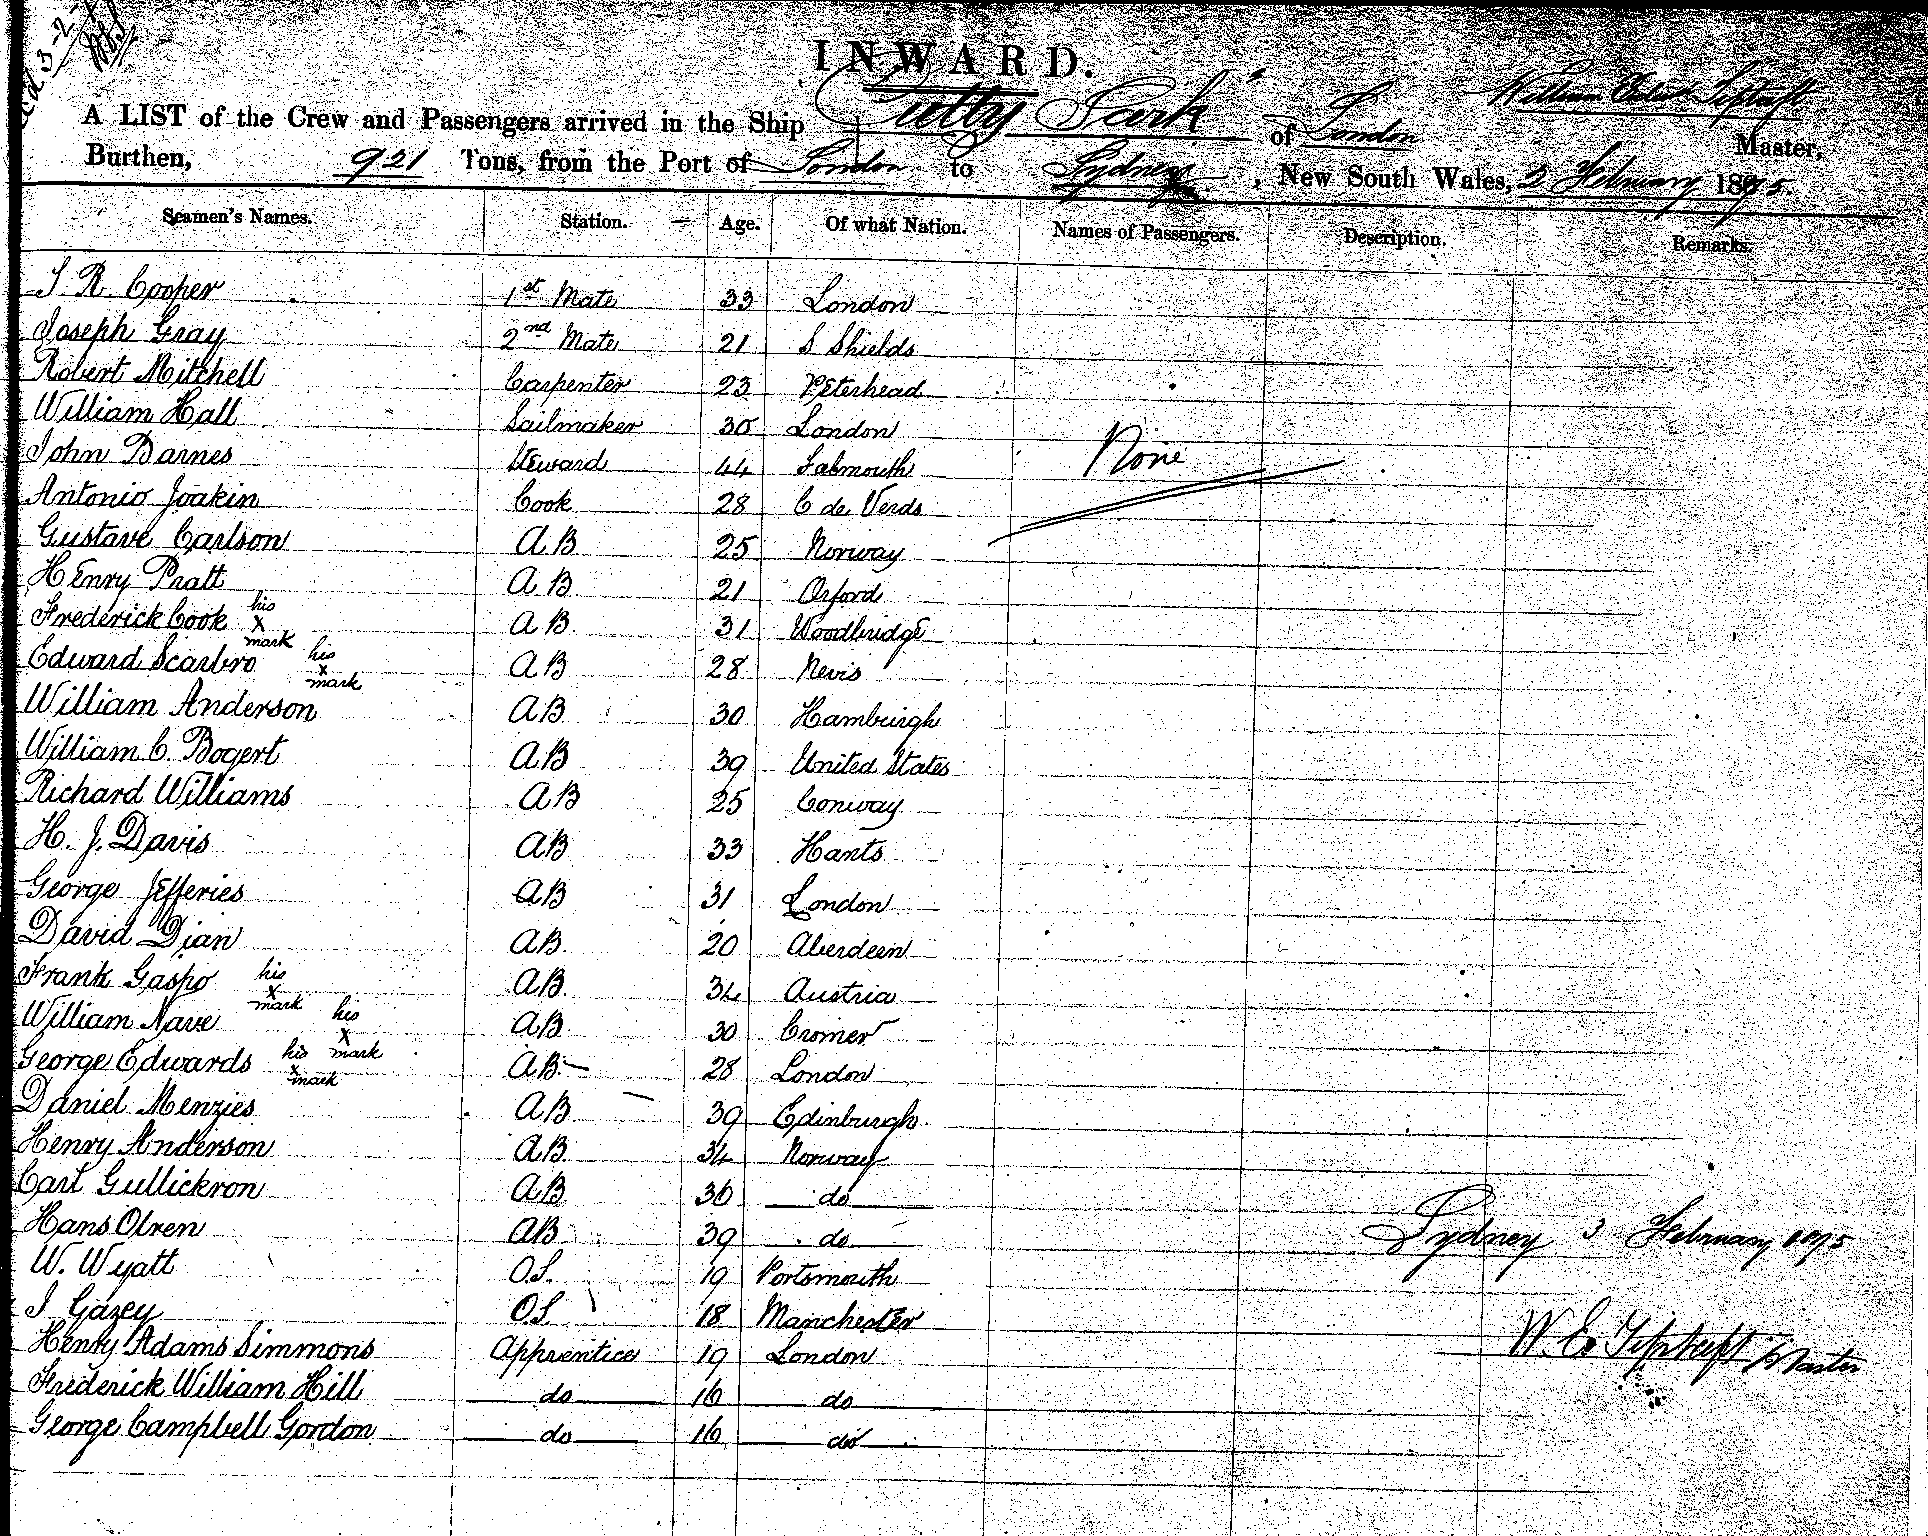 INWARD.
William Edward Tiptaft
A LIST of the Crew and Passengers arrived in the Ship "Cutty Sark" of London Master,
Burthen, 921 Tons, from the Port of London to Sydney, New South Wales, 2 February 1875.
Seamen's Names. Station. Age. Of what Nation. Names of Passengers. Description. Remarks.
J R Cooper 1st Mate 33 London
Joseph Gray 2nd Mate 21 S Shields
Robert Mitchell Carpenter 23 Peterhead
William Hall Sailmaker 30 London
John Barnes Steward 44 Falmouth None
Antonio Joakin Cook 28 C de Verds
Gustave Carlson AB 25 Norway
Henry Pratt AB 21 Oxford
Frederick Cook his X mark AB 31 Woodbridge
Edward Scarbro his X mark AB 28 Nevis
William Anderson AB 30 Hamburgh
William C. Bogert AB 39 United States
Richard Williams AB 25 Conway
H. J. Davis AB 33 Hants
George Jefferies AB 31 London
David Dian AB 20 Aberdeen
Frank Gaspo his X mark AB 34 Austria
William Nave his X mark AB 30 Cromer
George Edwards his X mark AB 28 London
Daniel Menzies AB 39 Edinburgh
Henry Anderson AB 34 Norway
Carl Gullickson AB 36 do
Hans Olsen AB 39 do Sydney 3 February 1875
W. Wyatt OS. 19 Portsmouth
J Gazey OS 18 Manchester
Henry Adams Simmons Apprentice 19 London W. E. Tiptaft Master
Frederick William Hill do 16 do
George Campbell Gordon do 16 do